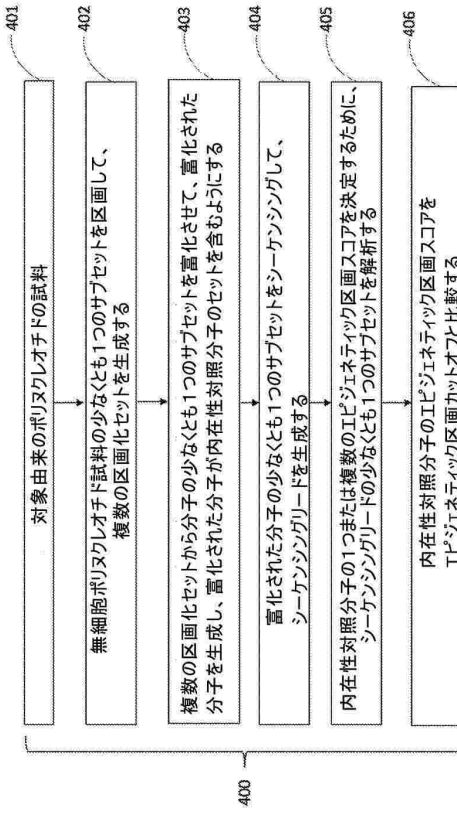 対象由来のポリヌクレオチドの試料
401
無細胞ポリヌクレオチド試料の少なくとも1つのサブセットを区画して、
複数の区画化セットを生成する
402
複数の区画化セットから分子の少なくとも1つのサブセットを富化させて、富化された
分子を生成し、富化された分子が内在性対照分子のセットを含むようにする
403
富化された分子の少なくとも1つのサブセットをシーケンシングして、
シーケンシングリードを生成する
404
内在性対照分子の1つまたは複数のエピジェネティック区画スコアを決定するために、
シーケンシングリードの少なくとも1つのサブセットを解析する
405
内在性対照分子のエピジェネティック区画スコアを
エピジェネティック区画カットオフと比較する
406
400